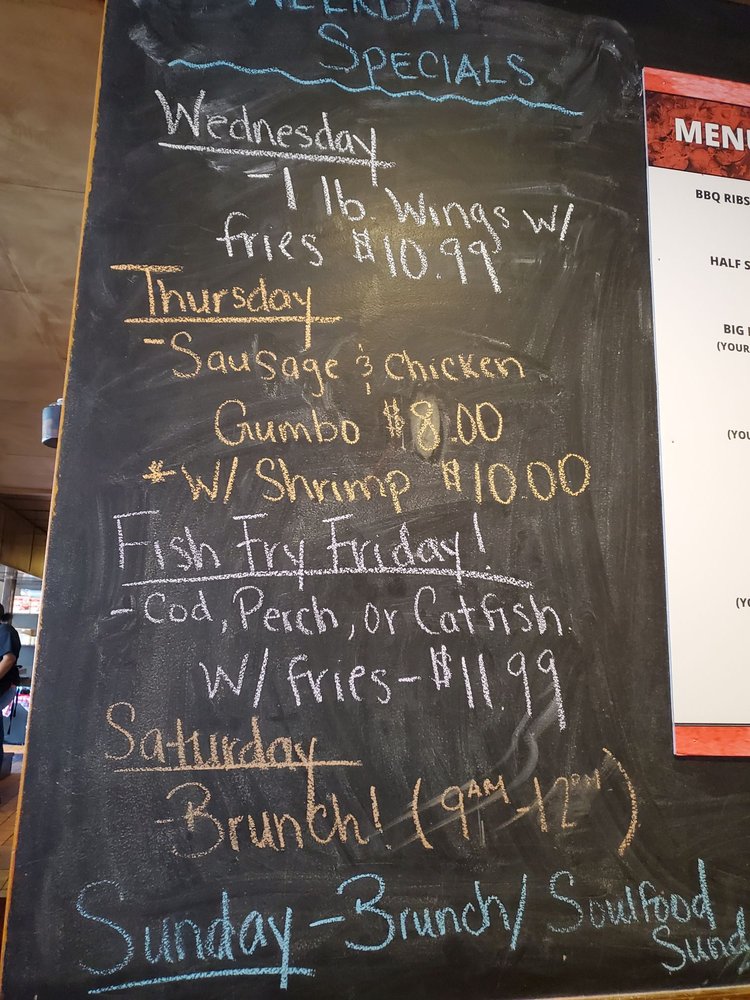 WEEKDAY
SPECIALS
Wednesday
-1 lb. Wings w/
fries $10.99
Thursday
-Sausage & Chicken
Gumbo $8.00
*W/ Shrimp $10.00
Fish Fry Friday!
-Cod, Perch, or Catfish
W/ fries-$11.99
Saturday
-Brunch! (9AM-12PM)
Sunday-Brunch/ Soulfood
MENU
BBQ RIBS
HALF
BIG
(YOUR